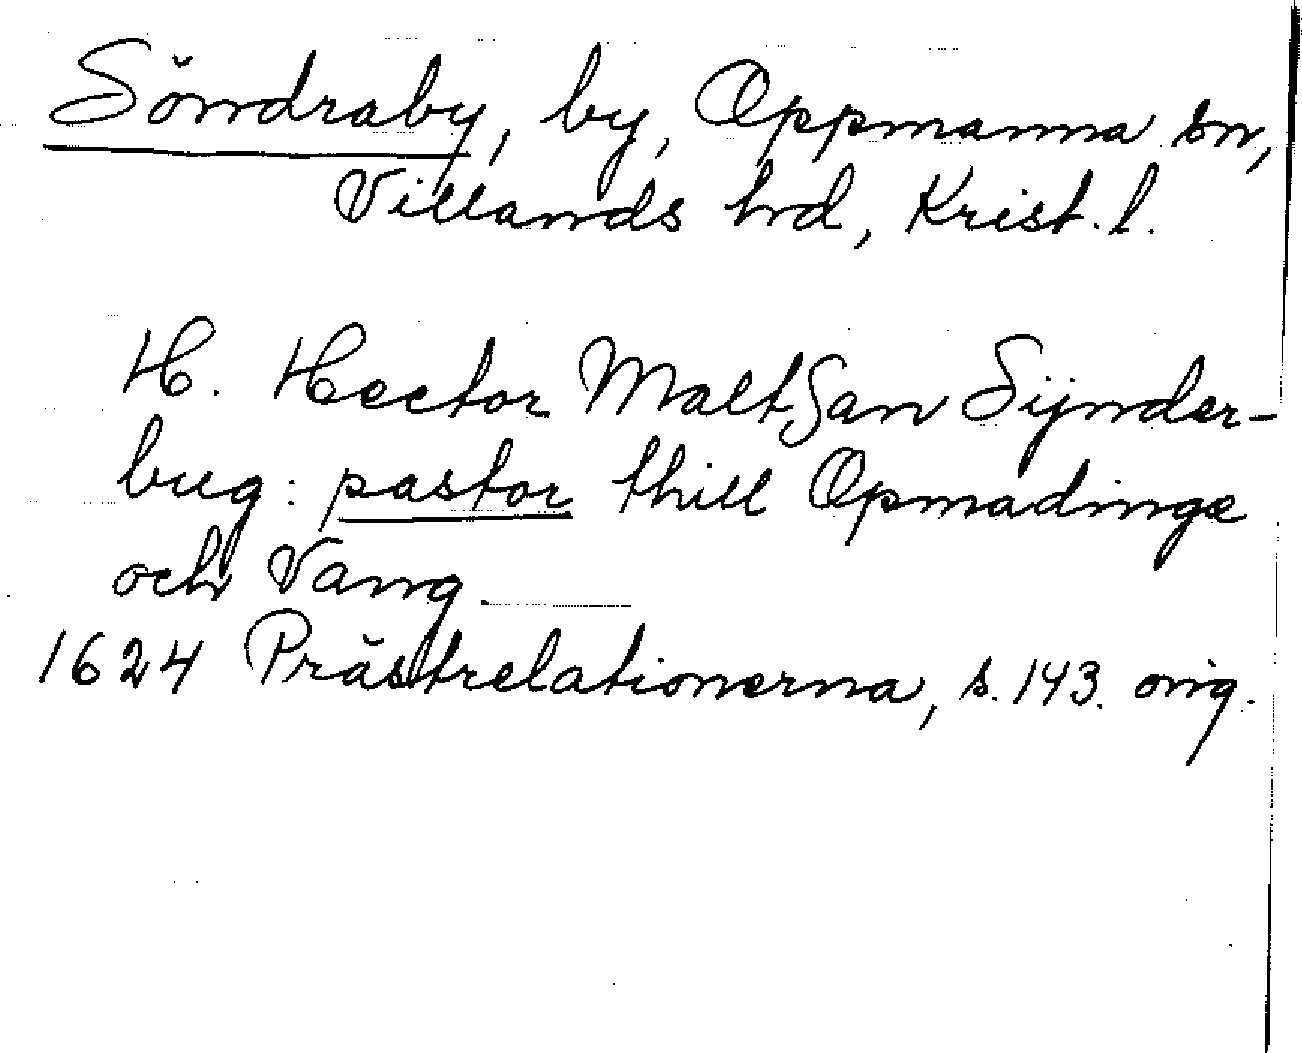 Söndraby, by, Oppmanna sn,
Villands hd, Krist. l.
H. Hector Maltsan Sÿnder-
bug: pastor thill Opmadinge
och Vang
1624 Prästrelationerna, s. 143. orig.